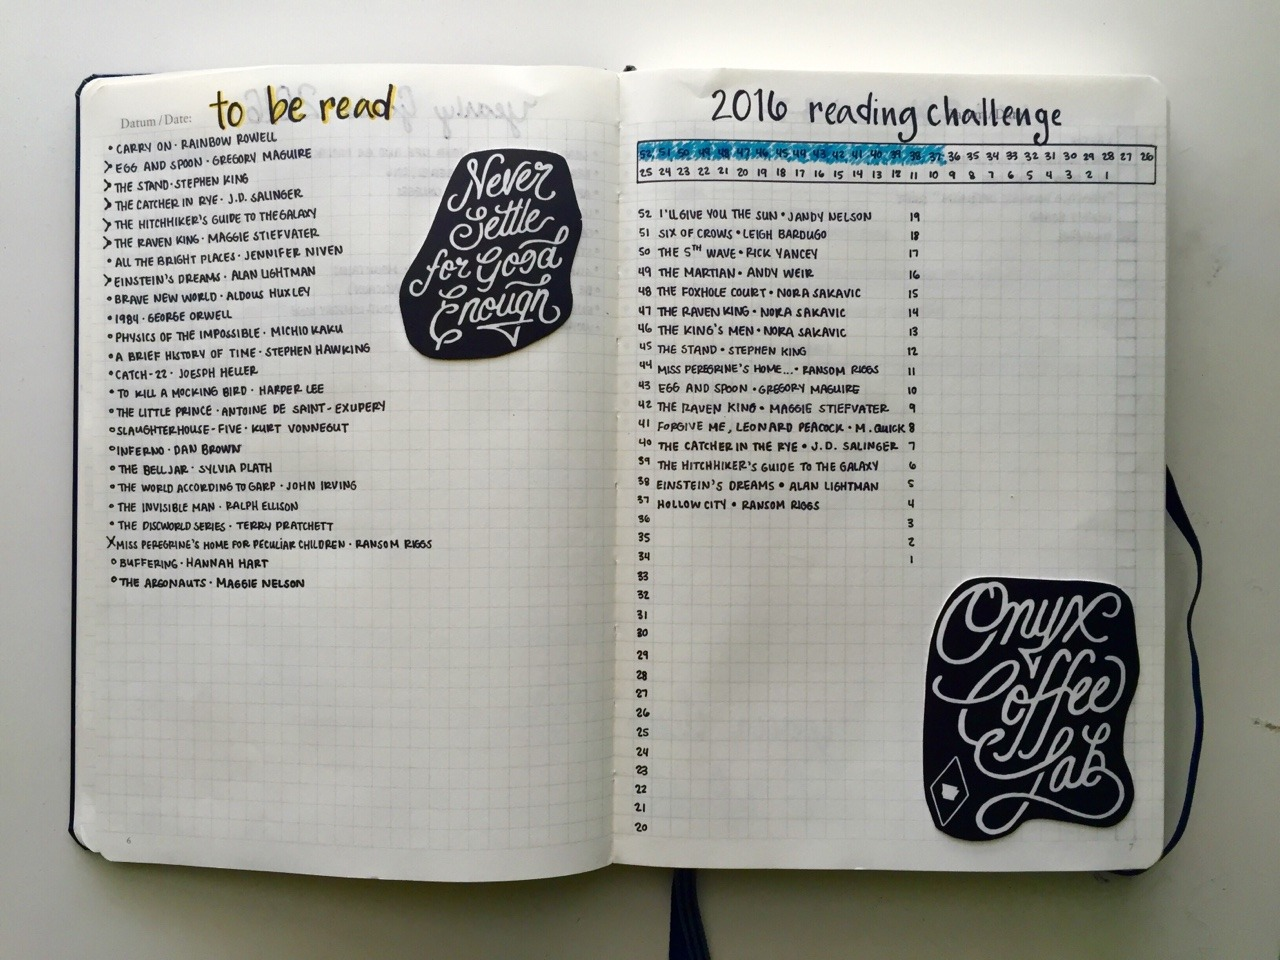 Datum / Date: to be read
• CARRY ON · RAINBOW ROWELL
> EGG AND SPOON · GREGORY MAGUIRE
> THE STAND · STEPHEN KING
> THE CATCHER IN RYE · J.D. SALINGER
> THE HITCHHIKER'S GUIDE TO THE GALAXY
> THE RAVEN KING · MAGGIE STIEFVATER
• ALL THE BRIGHT PLACES · JENNIFER NIVEN
> EINSTEIN'S DREAMS · ALAN LIGHTMAN
• BRAVE NEW WORLD · ALDOUS HUXLEY
• 1984 · GEORGE ORWELL
• PHYSICS OF THE IMPOSSIBLE · MICHIO KAKU
• A BRIEF HISTORY OF TIME · STEPHEN HAWKING
• CATCH-22 · JOESPH HELLER
• TO KILL A MOCKING BIRD · HARPER LEE
• THE LITTLE PRINCE · ANTOINE DE SAINT-EXUPERY
• SLAUGHTERHOUSE-FIVE · KURT VONNEGUT
• INFERNO · DAN BROWN
• THE BELL JAR · SYLVIA PLATH
• THE WORLD ACCORDING TO GARP · JOHN IRVING
• THE INVISIBLE MAN · RALPH ELLISON
• THE DISCWORLD SERIES · TERRY PRATCHETT
X MISS PEREGRINE'S HOME FOR PECULIAR CHILDREN · RANSOM RIGGS
• BUFFERING · HANNAH HART
• THE ARGONAUTS · MAGGIE NELSON
6
Never
Settle
for Good
Enough
2016 reading challenge
52 51 50 49 48 47 46 45 44 43 42 41 40 39 38 37 36 35 34 33 32 31 30 29 28 27 26
25 24 23 22 21 20 19 18 17 16 15 14 13 12 11 10 9 8 7 6 5 4 3 2 1
52 I'LL GIVE YOU THE SUN • JANDY NELSON 19
51 SIX OF CROWS • LEIGH BARDUGO 18
50 THE 5TH WAVE • RICK YANCEY 17
49 THE MARTIAN • ANDY WEIR 16
48 THE FOXHOLE COURT • NORA SAKAVIC 15
47 THE RAVEN KING • NORA SAKAVIC 14
46 THE KING'S MEN • NORA SAKAVIC 13
45 THE STAND • STEPHEN KING 12
44 MISS PEREGRINE'S HOME... • RANSOM RIGGS 11
43 EGG AND SPOON • GREGORY MAGUIRE 10
42 THE RAVEN KING • MAGGIE STIEFVATER 9
41 FORGIVE ME, LEONARD PEACOCK • M. QUICK 8
40 THE CATCHER IN THE RYE • J.D. SALINGER 7
39 THE HITCHHIKER'S GUIDE TO THE GALAXY 6
38 EINSTEIN'S DREAMS • ALAN LIGHTMAN 5
37 HOLLOW CITY • RANSOM RIGGS 4
36 3
35 2
34 1
33
32
31
30
29
28
27
26
25
24
23
22
21
20
Onyx
Coffee
Lab
7